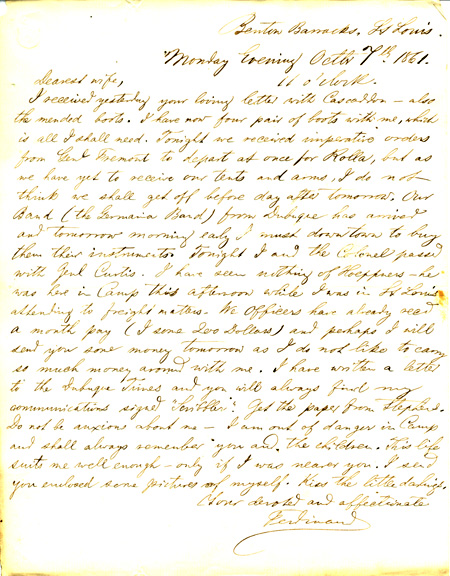 Benton Barracks, St Louis.
Monday Evening Octbr 7th 1861.
11 o'clock.
Dearest wife,
I received yesterday your loving letter with Cascaddon - also
the mended boots. I have now four pair of boots with me, which
is all I shall need. Tonight we received imperative orders
from Genl Fremont to depart at once for Rolla, but as
we have yet to receive our tents and arms, I do not
think we shall get off before day after tomorrow. Our
Band (the Germania Band) from Dubuque has arrived
and tomorrow morning early I must downtown to buy
them their instruments. Tonight I and the Colonel passed
with Genl Curtis. I have seen nothing of Hoeppners - he
was here in Camp this afternoon while I was in St Louis
attending to freight matters. We Officers have already recd
a month pay (I some 200 Dollars) and perhaps I will
send you some money tomorrow as I do not like to carry
so much money around with me. I have written a letter
to the Dubuque Times and you will always find my
communications signed "Scribbler". Get the paper from Stephens.
Do not be anxious about me - I am out of danger in Camp
and shall always remember you and the children. This life
suits me well enough - only if I was nearer you. I send
you enclosed some pictures of myself. Kiss the little darlings.
Your devoted and affectionate
Ferdinand